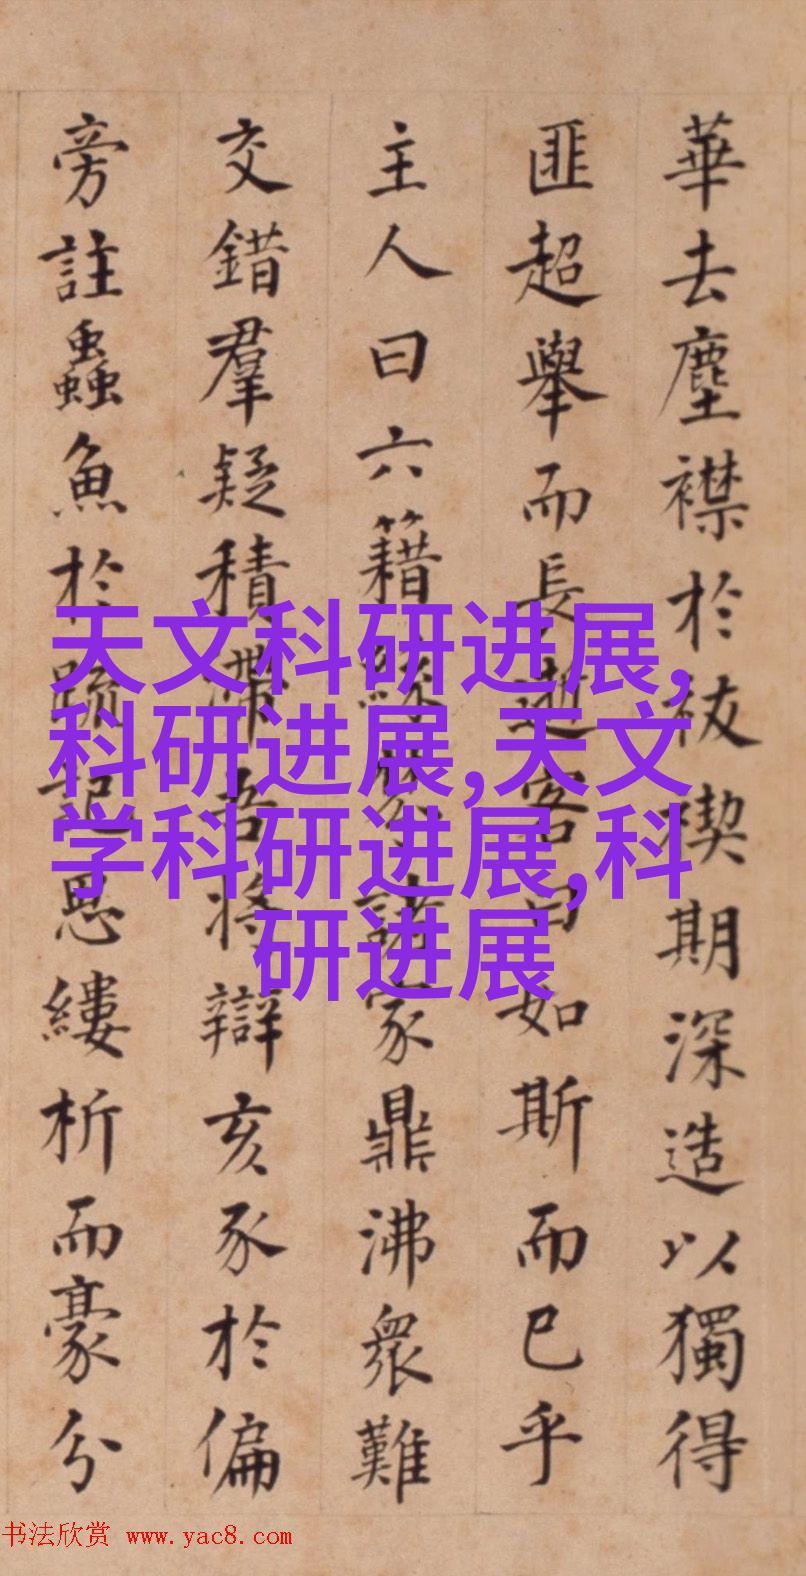 華去塵襟於祓禊期深造以獨得
匪超舉而長逝客曰如斯而已乎
主人曰六籍諸家鼎沸衆難
交錯羣疑積滯吾將辯亥豕於偏
旁註蟲魚於疏記思縷析而豪分
天文科研进展,
科研进展,天文
学科研进展,科
研进展
书法欣赏 www.yac8.com